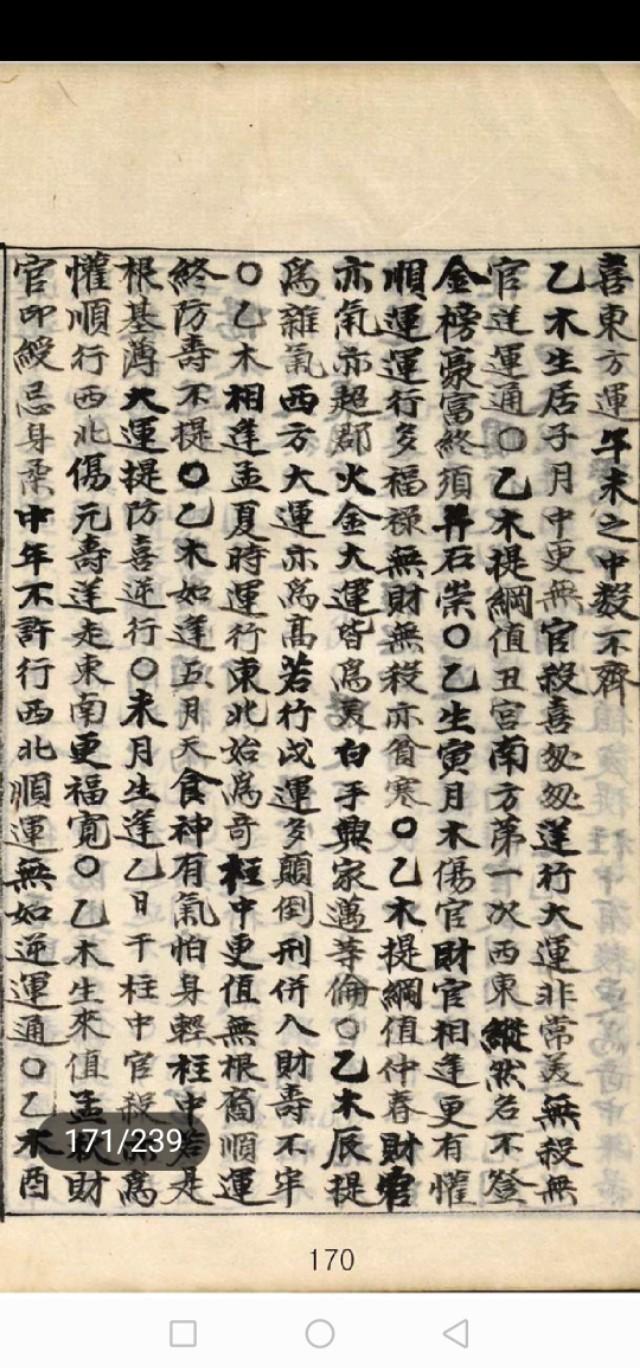 喜東方運午未之中數不齊
乙木生居子月中更無官殺喜匆匆逆行大運非常美無殺無
官逆運通○乙木提綱值丑宮南方第一次西東縱然名不登
金榜豪富終須昇石崇○乙生寅月木傷官財官相逢更有懽
順運運行多福祿無財無殺亦貧寒○乙木提綱值仲春財官
亦氣亦超郡火金大運皆爲美白手興家邁等倫○乙木辰提
爲雜氣西方大運亦爲高若行戌運多顛倒刑併入財壽不牢
○乙木相逢孟夏時運行東北始爲奇柱中更值無根裔順運
終防壽不提○乙木如逢五月天食神有氣怕身輕柱中若是
根基薄大運提防喜逆行○未月生逢乙日干柱中官殺爲
懽順行西北傷元壽逆走東南更福寬○乙木生來值孟秋財
官印綬忌身柔中年不許行西北順運無如逆運通○乙木酉
171/239
170